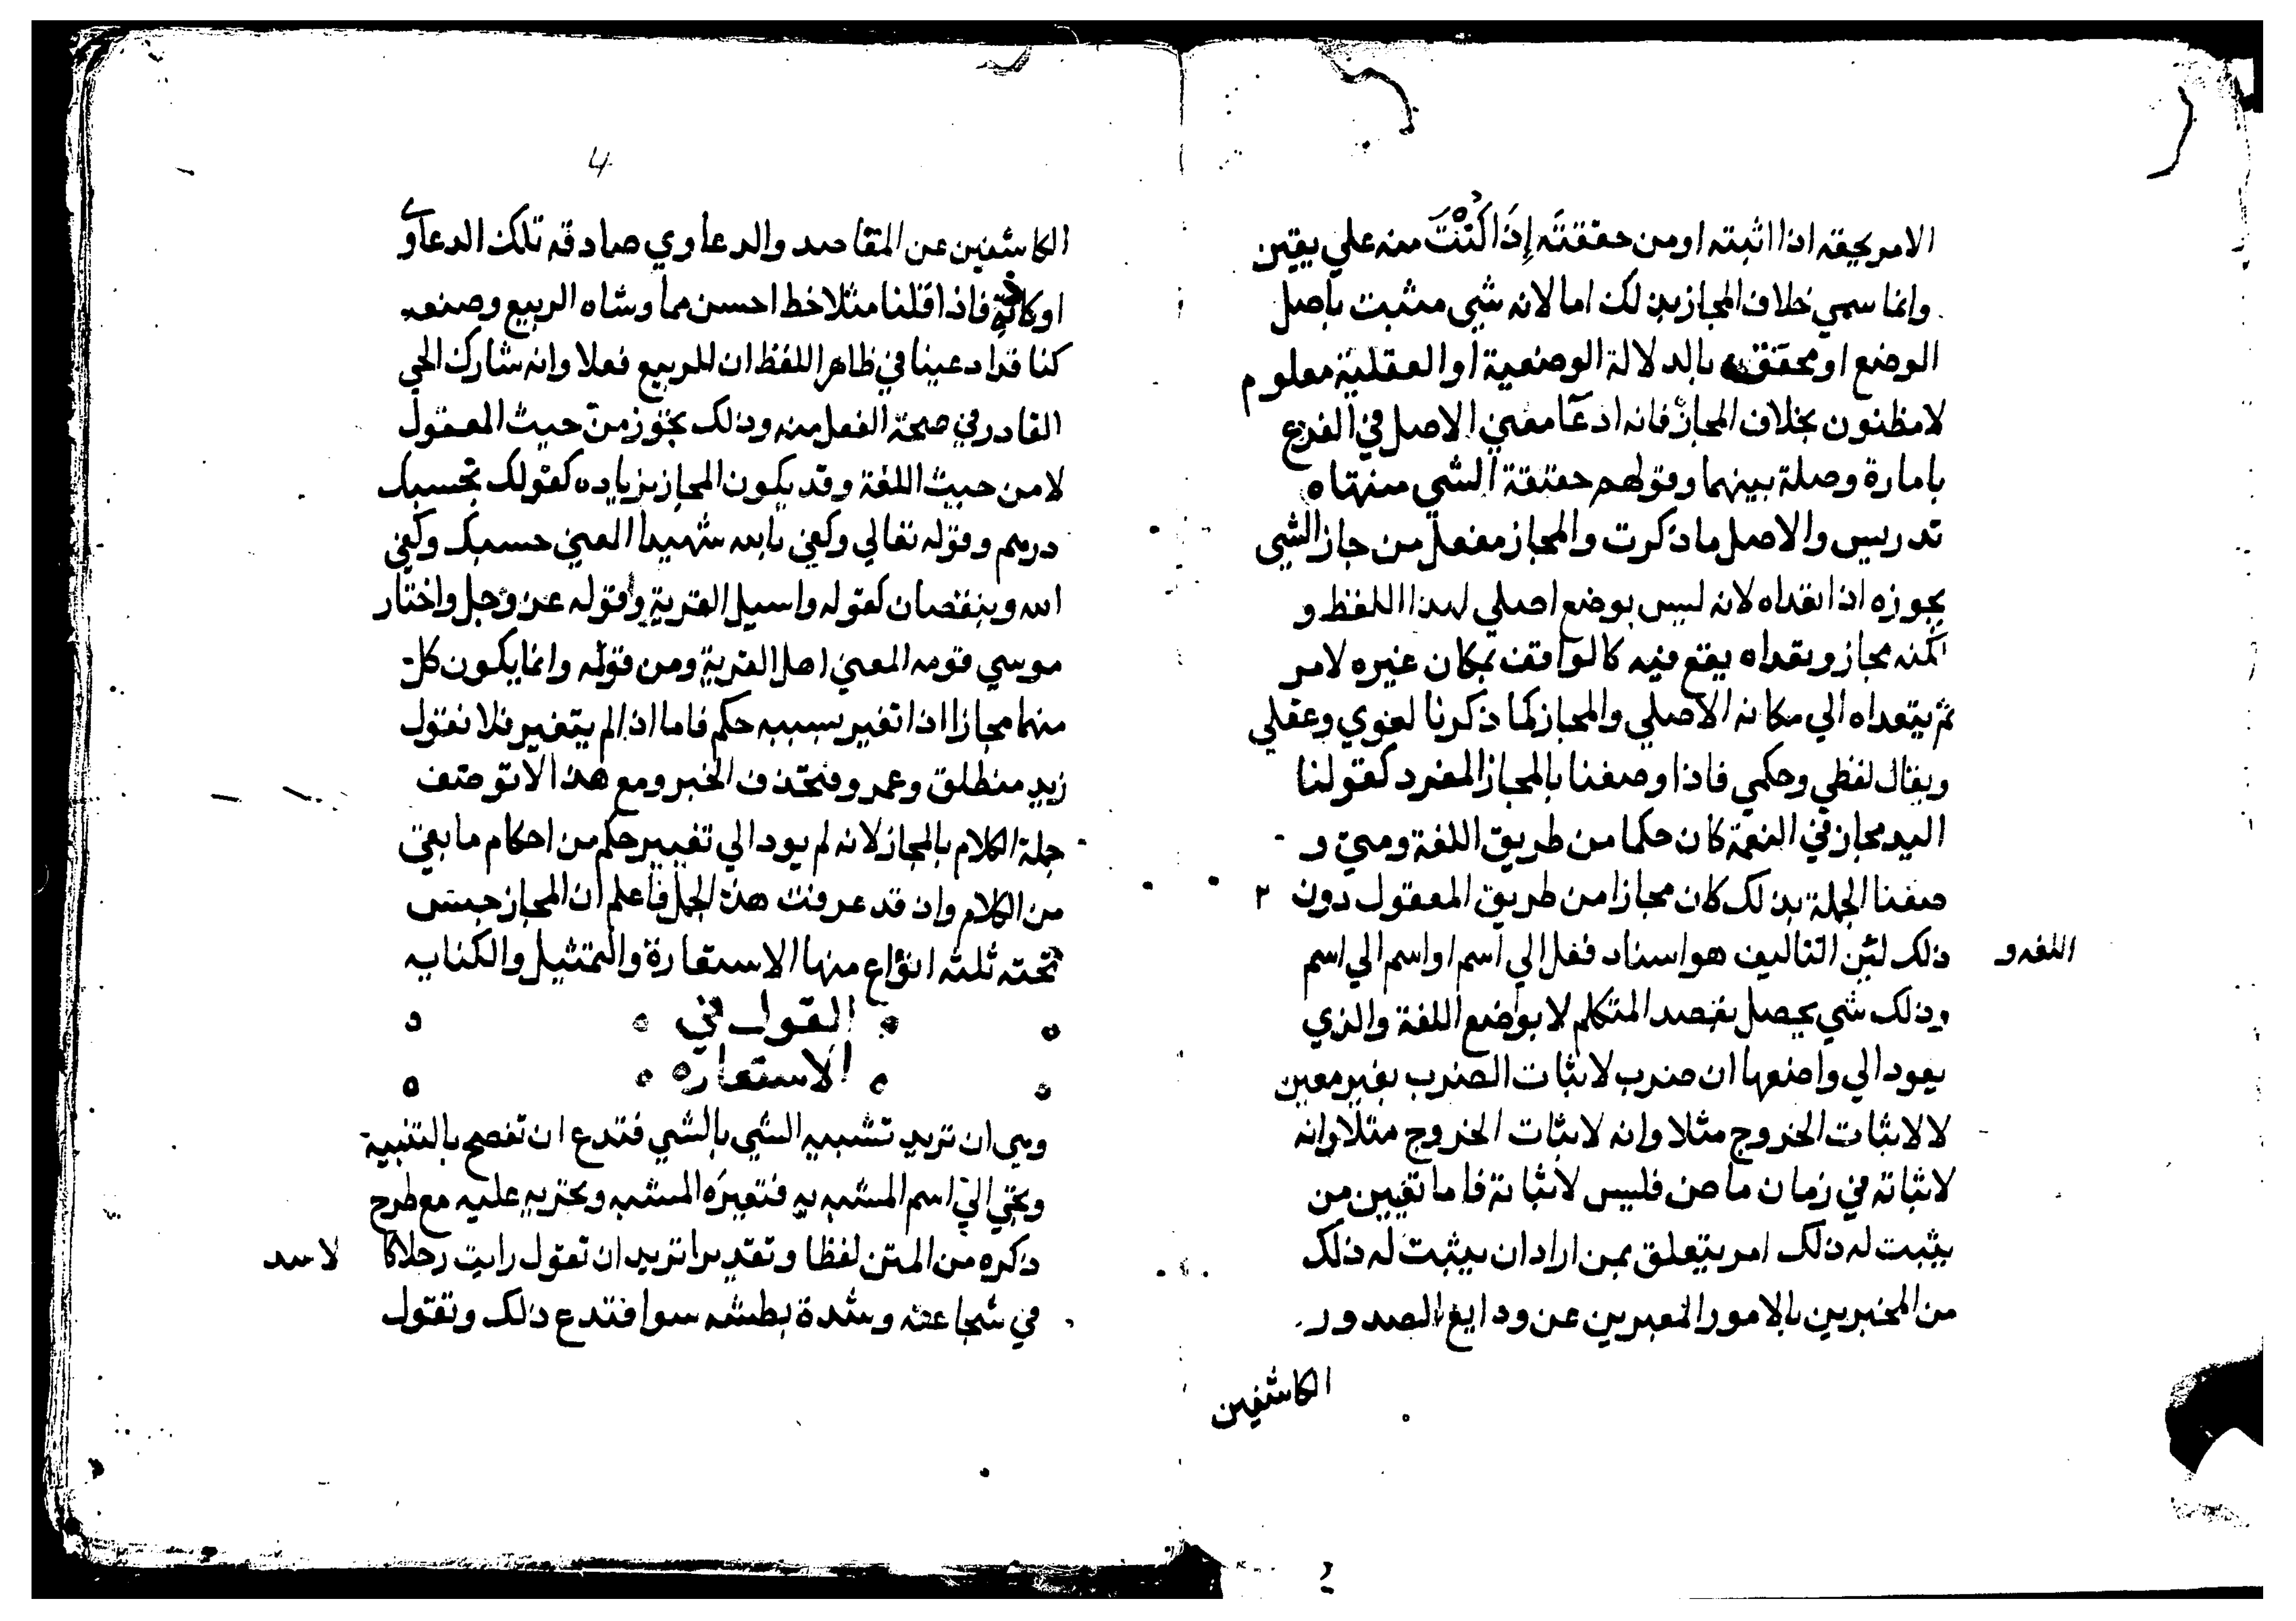 الامر يحقه اذا اثبته او من حققته إذَا كُنْتَ منه علي يقين
وانما سمي خلاف المجاز بذلك اما لانه شي مثبت باصل
الوضع او محقق بالدلالة الوضعية او العقلية معلوم
لا مظنون بخلاف المجاز فانه ادعا معني الاصل في الفرع
بامارة وصلة بينهما وقولهم حقيقة الشي منتهاه
تدريس والاصل ما ذكرت والمجاز مفعل من جاز الشي
يجوزه اذا تعداه لانه ليس بوضع اصلي لهذا اللفظ و
لكنه مجاز وتعداه يقع فيه كالواقف بمكان غيره لامر
ثم يتعداه الي مكانه الاصلي والمجاز كما ذكرنا لغوي وعقلي
ويقال لفظي وحكمي فاذا وصفنا بالمجاز المفرد كقولنا
اليد مجاز في النعمة كان حكما من طريق اللغة ومتي و
صفنا الجملة بذلك كان مجازا من طريق المعقول دون ٢
اللغه و
ذلك لئن التاليف هو اسناد فعل الي اسم او اسم الي اسم
وذلك شي يحصل بقصد المتكلم لا بواضع اللغة والذي
يعود الي واضعها ان ضرب لاثبات الضرب بغير معين
لا لاثبات الخروج مثلا وانه لاثبات الخروج مثلا وانه
لاثباته في زمان ماض فليس لاثباته فاما تعيين من
يثبت له ذلك امر يتعلق بمن اراد ان يثبت له ذلك
من المخبرين بالامور المعبرين عن ودايع الصدور
الكاشفين
4
الكاشفين عن المقاصد والدعاوي صادقه تلك الدعاوي
او كاذبة فاذا قلنا مثلا خط احسن مما وشاه الربيع وصنعه
كنا قد ادعينا في ظاهر اللفظ ان للربيع فعلا وانه شارك الحي
القادر في صحة الفعل منه وذلك يجوز من حيث المعقول
لا من حيث اللغة وقد يكون المجاز بزياده كقولك بحسبك
درهم وقوله تعالي وكفي بالله شهيدا المعني حسبك وكفي
الله وبنقصان كقوله واسيل القرية وقوله عز وجل واختار
موسي قومه المعني اهل القرية ومن قومه وانما يكون كل
منهما مجازا اذا تغير بسببه حكم فاما اذا لم يتغير فلا نقول
زيد منطلق وعمرو فتحذف الخبر ومع هذا لا توصف
جملة الكلام بالمجاز لانه لم يود الي تغيير حكم من احكام ما بقي
من الكلام واذ قد عرفت هذه الجمل فاعلم ان المجاز جنس
تحته ثلثه انواع منها الاستعارة والتمثيل والكنايه
القول في
الاستعاره
وهي ان تريد تشبيه الشي بالشي فتدع ان تفصح بالتشبيه
وتجي الي اسم المشبه به فتعيره المشبه وتجريه عليه مع طرح
ذكره من المتن لفظا وتقديرا تريد ان تقول رايت رجلا كا لاسد
في شجاعته وشدة بطشه سوا فتدع ذلك وتقول